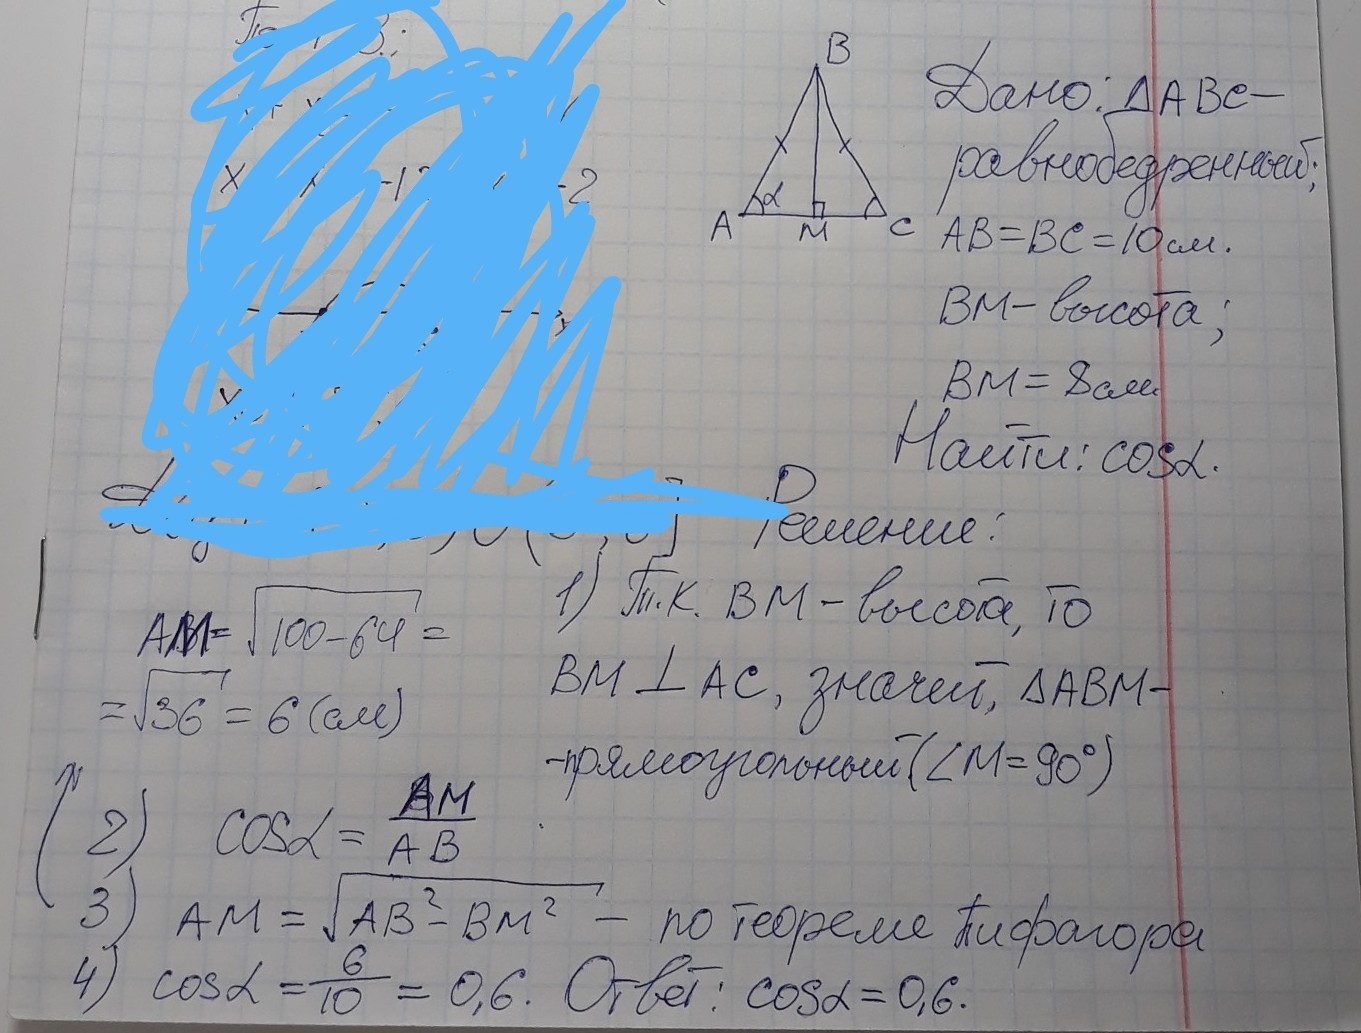 B
A
α
M
C
Дано: ΔABC-
равнобедренный;
AB=BC=10см.
BM-высота;
BM=8см
Найти: cosα.
Решение:
1) Т.к. BM-высота, то
BM⊥AC, значит, ΔABM-
-прямоугольный (∠M=90°)
AM=√100-64=
=√36=6(см)
2) cosα=AM/AB
3) AM=√AB²-BM² - по теореме Пифагора
4) cosα=6/10=0,6. Ответ: cosα=0,6.